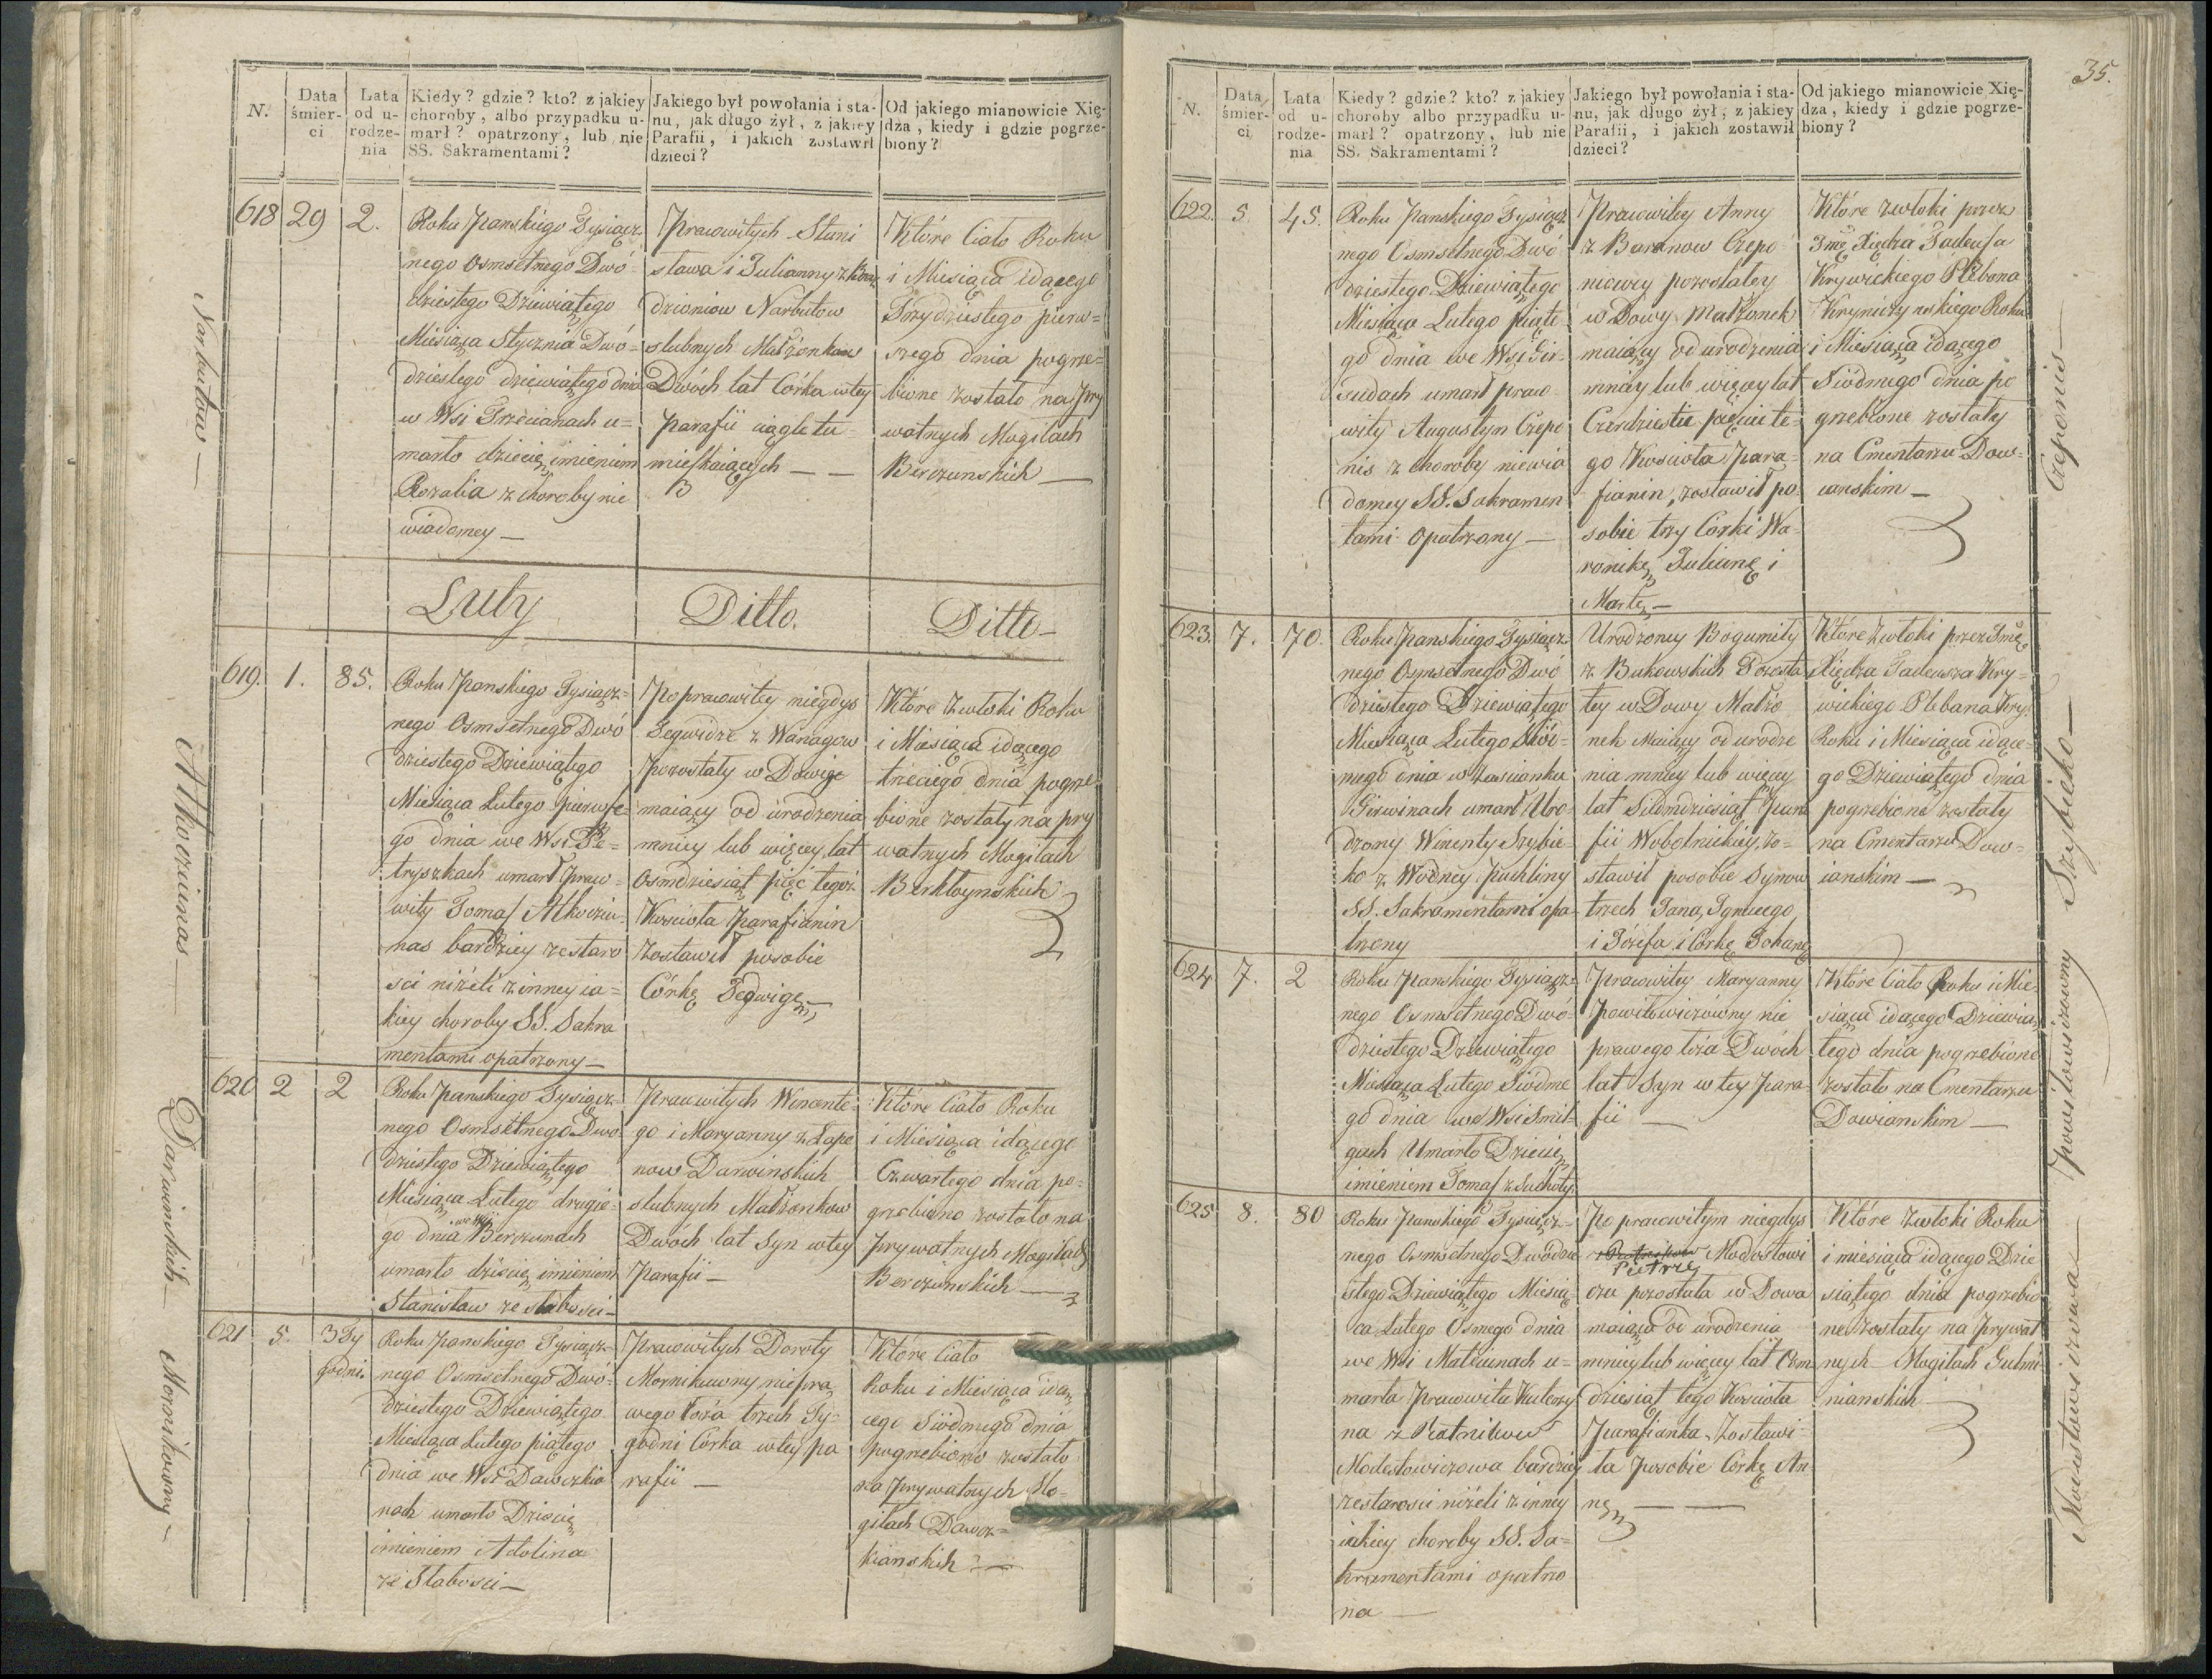 N.
Data śmier- ci
Lata od u- rodze- nia
Kiedy? gdzie? kto? z jakiey
choroby, albo przypadku u-
marł? opatrzony, lub nie
SS. Sakramentami?
Jakiego był powołania i sta-
nu, jak długo żył, z jakiey
Parafii, i jakich zostawił
dzieci?
Od jakiego mianowicie Xię-
dza, kiedy i gdzie pogrze-
biony?
618
29
2.
Roku Panskiego Tysiącz
nego Osmsetnego Dwó
dziestego Dziewiątego
Miesiąca Stycznia Dwó-
dziestego dziewiątego dnia
w Wsi Trzecianach u=
marło dziecię imieniem
Rozalia z choroby nie
wiadomey —
Pracowitych Stani
sława i Julianny z
dzioniow Narbutow
slubnych Małżonkow
Dwóch lat Córka w tey
Parafii ciągle tu
mieszkaiących — —
Które Ciało Roku
i Miesiąca idącego
Trzydziestego pierw=
szego dnia pogrze=
bione zostało na pry
watnych Mogiłach
Berzunskich —
Narbutow —
Luty
Ditto.
Ditto —
619.
1.
85.
Roku Panskiego Tysiącz=
nego Osmsetnego Dwó
dziestego Dziewiątego
Miesiąca Lutego pierwsze
go dnia we Wsi Pe=
tryszkach umarł praw=
wity Tomasz Atkocziu
nas bardziey ze staro
sci niżeli z inney ia=
kiey choroby SS. Sakra
mentami opatrzony —
Po pracowitey niegdys
Jegwidze z Wanagow
pozostały w Dowie
maiący od urodzenia
mniey lub więcey lat
Osmdziesiąt pięć tegoż
Kościoła Parafianin
zostawił po sobie
Córkę Jedwigę —
Które Zwłoki Roku
i Miesiąca idącego
trzeciego dnia pogrze=
bione zostały na pry
watnych Mogiłach
Atkocziunas —
620
2
2
Roku Panskiego Tysiącz=
nego Osmsetnego Dwo
dziestego Dziewiątego
Miesiąca Lutego drugie=
go dnia we Wsi Berzunach
umarło dziecię imieniem
Stanisław ze słabosci —
Pracowitych Wincente
go i Maryanny z Łape
now Darwinskich
slubnych Małżonkow
Dwóch lat Syn w tey
Parafii —
Które Ciało Roku
i Miesiąca idącego
Czwartego dnia po=
grzebiono zostało na
prywatnych Mogiłach
Berzunskich —
Darwinskich —
621
5.
3 Ty
godni.
Roku Panskiego Tysiącz=
nego Osmsetnego Dwó=
dziestego Dziewiątego
Miesiąca Lutego piątego
dnia we Wsi Dawczkia
nach umarło Dziecię
imieniem Adolina
ze Słabosci —
Pracowitych Doroty
Mornikowny niepra
wego łoża trzech Ty=
godni Córka w tey pa
rafii —
Które Ciało
Roku i Miesiąca idą
cego Siódmego dnia
pogrzebiono zostało
na prywatnych Mo=
giłach Dawcz=
kianskich —
Mornikowny —
35.
N.
Data śmier- ci
Lata od u- rodze- nia
Kiedy? gdzie? kto? z jakiey
choroby albo przypadku u-
marł? opatrzony, lub nie
SS. Sakramentami?
Jakiego był powołania i sta-
nu, jak długo żył, z jakiey
Parafii, i jakich zostawił
dzieci?
Od jakiego mianowicie Xię-
dza, kiedy i gdzie pogrze-
biony?
622.
5.
45.
Roku Panskiego Tysiącz
nego Osmsetnego Dwó
dziestego Dziewiątego
Miesiąca Lutego piąte
go dnia we Wsi Gir=
sudach umarł praco
wity Augustyn Czepo
nis z choroby niewia
domey SS. Sakramen
tami opatrzony —
Pracowitey Anny
z Baranow Czepo
niowey pozostałey
w Dowy Małżonek
maiący od urodzenia
mniey lub więcey lat
Czterdziestu pięciu te=
go Kościoła Para=
fianin, zostawił po
sobie trzy Córki We
ronikę, Juliannę i
Martę —
Które zwłoki przez
Jmć Xiędza Tadeusza
Krywickiego Plebana
Kryniczynskiego Roku
i Miesiąca idącego
Siódmego dnia po
grzebione zostały
na Cmentarzu Dow=
ianskim —
Czeponis —
623.
7.
70.
Roku Panskiego Tysiącz
nego Osmsetnego Dwó
dziestego Dziewiątego
Miesiąca Lutego Siód=
mego dnia w Zascianku
Girwinach umarł Uro=
dzony Wincenty Szybie
ko z Wodney Puchliny
SS. Sakramentami opa=
trzony
Urodzoney Bogumiły
z Bukowskich Pozosta
łey w Dowy Małżo
nek Maiący od urodze
nia mniey lub więcey
lat Siedmdziesiąt Para
fii Wobolnickiey, zo=
stawił po sobie Synow
trzech Jana, Ignacego,
i Józefa i Córkę Johannę
Które Zwłoki przez Jmć
Xiędza Tadeusza Kry=
wickiego Plebana Kry.
Roku i Miesiąca idące=
go Dziewiątego dnia
pogrzebione zostały
na Cmentarzu Dow=
ianskim —
Szybieko —
624
7.
2
Roku Panskiego Tysiącz=
nego Osmsetnego Dwó=
dziestego Dziewiątego
Miesiąca Lutego Siódme
go dnia we Wsi Smil
gach Umarło Dziecię
imieniem Tomasz z Suchoty.
Pracowitey Maryanny
Powiłowiczowny nie
prawego łoża Dwóch
lat Syn w tey Para
fii —
Które Ciało Roku i Mie
siąca idącego Dziewią
tego dnia pogrzebiono
zostało na Cmentarzu
Dowianskim —
Powiłowiczowny
625
8.
80
Roku Panskiego Tysiącz=
nego Osmsetnego Dwódzie
stego Dziewiątego Miesią
ca Lutego Osmego dnia
we Wsi Mateiunach u=
marła Pracowita Katerzy
na z Piatnikow
Modestowiczowa bardziey
ze starosci niżeli z inney
iakiey choroby SS. Sa=
kramentami opatrzo
na —
Po pracowitym niegdys
Pietrze Modestowi
czu pozostała w Dowa
maiąca od urodzenia
mniey lub więcey lat Osm
dziesiąt tego Kościoła
Parafianka. Zostawi=
ła po sobie Córkę An
nę — —
Które Zwłoki Roku
i miesiąca idącego Dzie
siątego dnia pogrzebio
ne zostały na prywat
nych Mogiłach Gulmi
nianskich